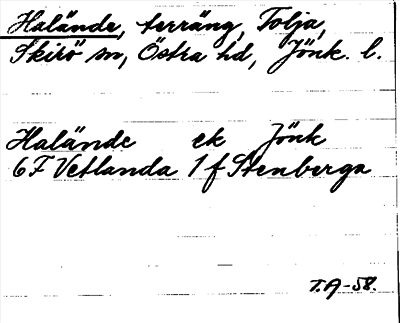 Halände, terräng, Tolja,
Skirö sn, Östra hd, Jönk. l.
Halände ek Jönk
6F Vetlanda 1f Stenberga
T.A-58.